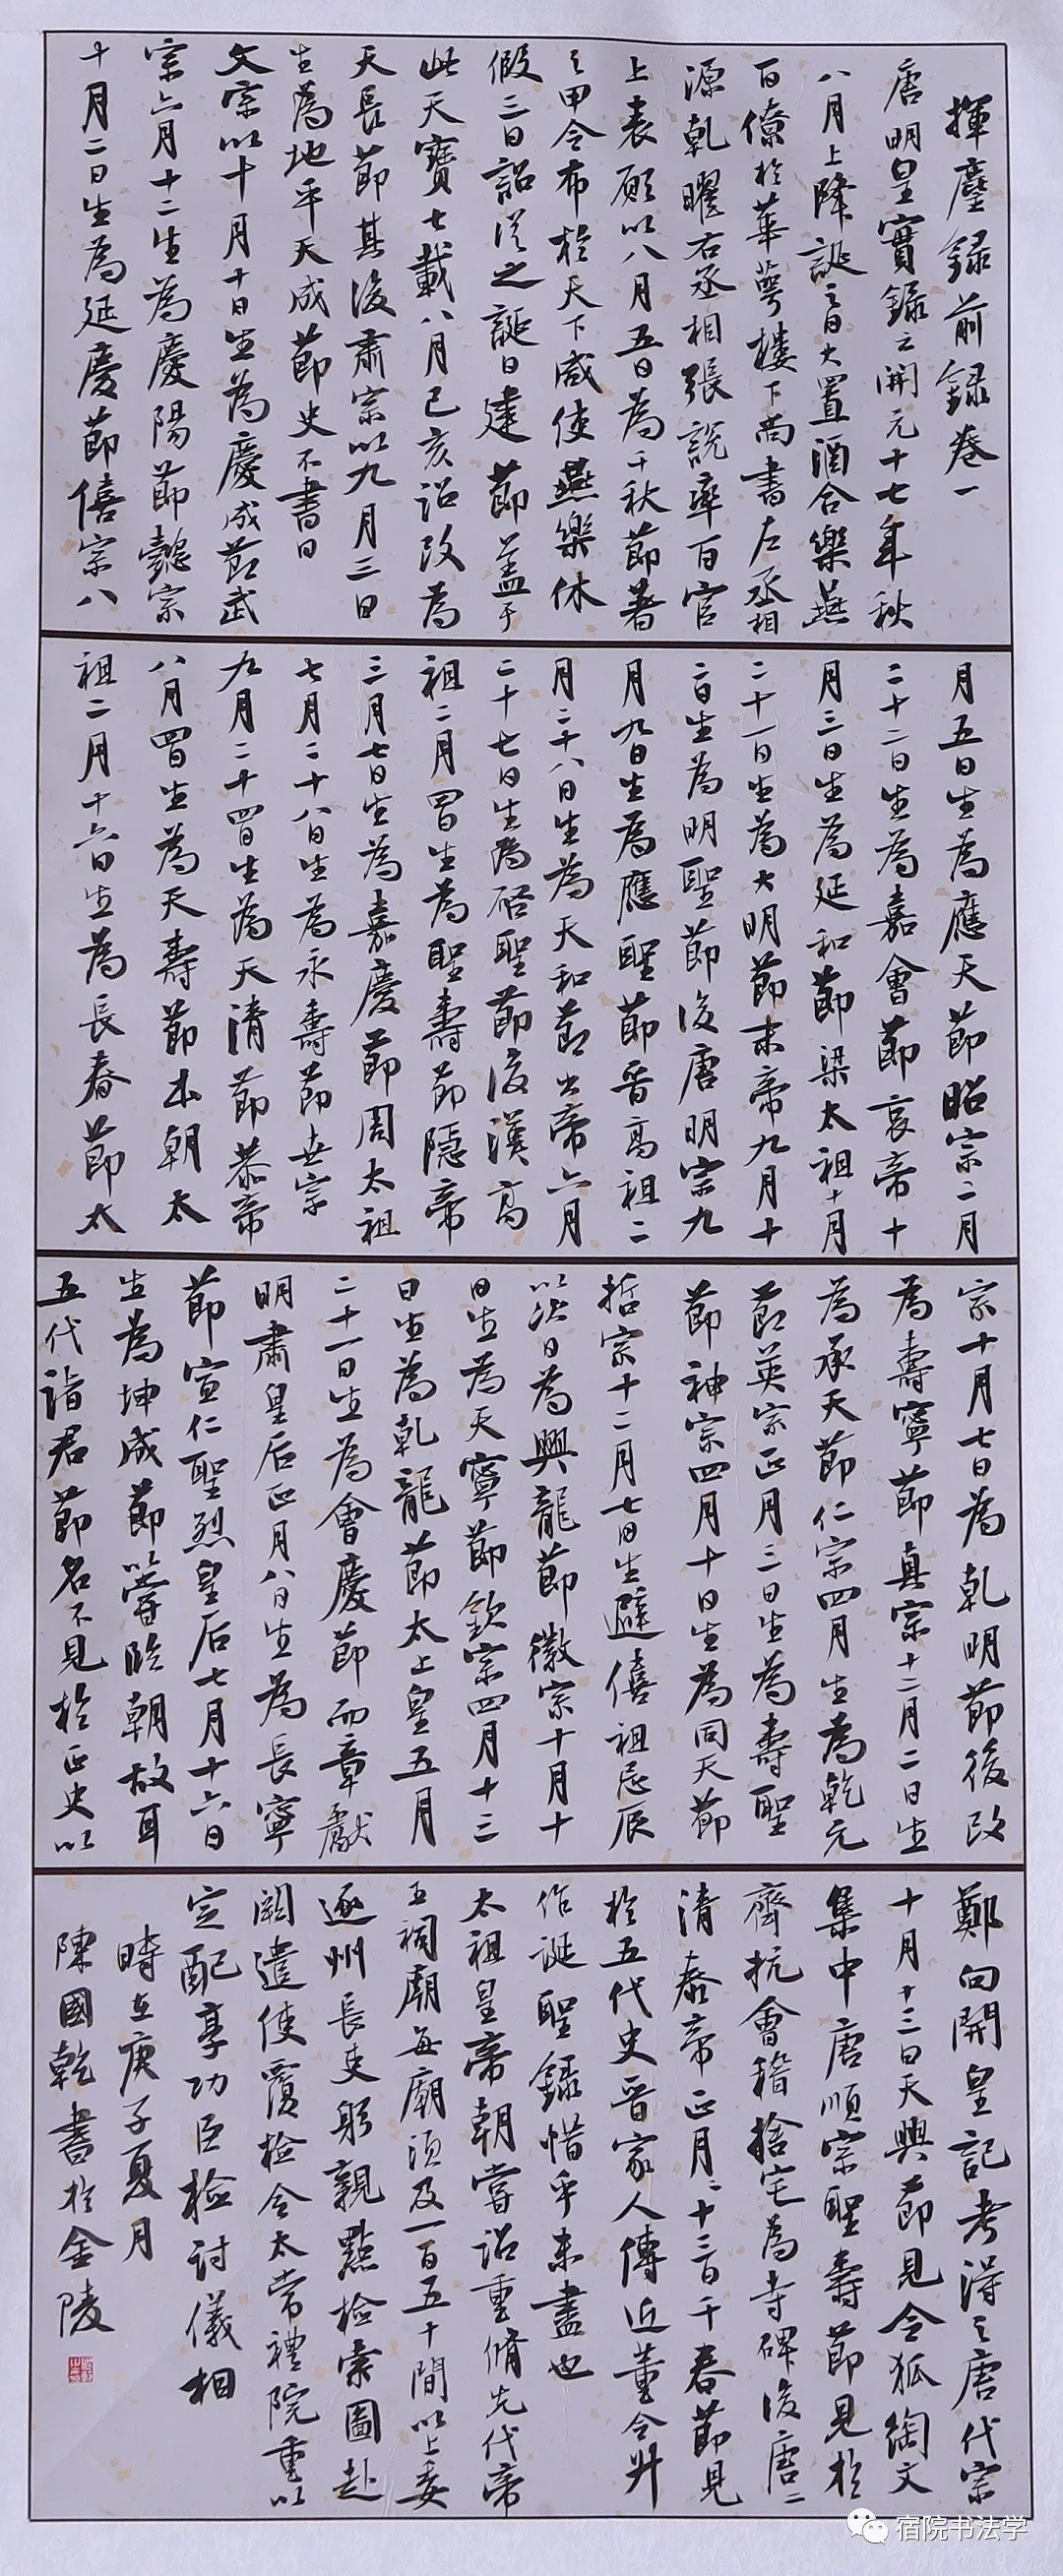 揮麈録前録卷一
唐明皇實録云開元十七年秋
八月上降誕之日大置酒合樂燕
百僚於華萼樓下尚書左丞相
源乾曜右丞相張說率百官
上表願以八月五日為千秋節著
之甲令布於天下咸使燕樂休
假三日詔從之誕日建節蓋于
此天寶七載八月己亥詔改為
天長節其後肅宗以九月三日
生為地平天成節史不書日
文宗以十月十日生為慶成節武
宗六月十二生為慶陽節懿宗
十月二日生為延慶節僖宗八
月五日生為應天節昭宗二月
二十二日生為嘉會節哀帝十
月三日生為延和節梁太祖十月
二十一日生為大明節末帝九月十
二日生為明聖節後唐明宗九
月九日生為應聖節晉高祖二
月二十八日生為天和節出帝六月
二十七日生為啓聖節後漢高
祖二月四日生為聖壽節隱帝
三月七日生為嘉慶節周太祖
七月二十八日生為永壽節世宗
九月二十四日生為天清節恭帝
八月四日生為天壽節本朝太
祖二月十六日生為長春節太
宗十月七日為乾明節後改
為壽寧節真宗十二月二日生
為承天節仁宗四月生為乾元
節英宗正月三日生為壽聖
節神宗四月十日生為同天節
哲宗十二月七日生避僖祖忌辰
以次日為興龍節徽宗十月十
日生為天寧節欽宗四月十三
日生為乾龍節太上皇五月
二十一日生為會慶節而章獻
明肅皇后正月八日生為長寧
節宣仁聖烈皇后七月十六日
生為坤成節以嘗臨朝故耳
五代諸君節名不見於正史以
鄭向開皇記考得之唐代宗
十月十三日天興節見令狐綯文
集中唐順宗聖壽節見於
齊抗會稽捨宅為寺碑後唐
清泰帝正月二十三日千春節見
於五代史晉家人傳近董令升
作誕聖録惜乎未盡也
太祖皇帝朝嘗詔重脩先代帝
王祠廟每廟須及一百五十間以上委
逐州長吏躬親點檢索圖赴
闕遣使覆檢令太常禮院重以
定配享功臣檢討儀相
時在庚子夏月
陳國乾書於金陵
宿院书法学